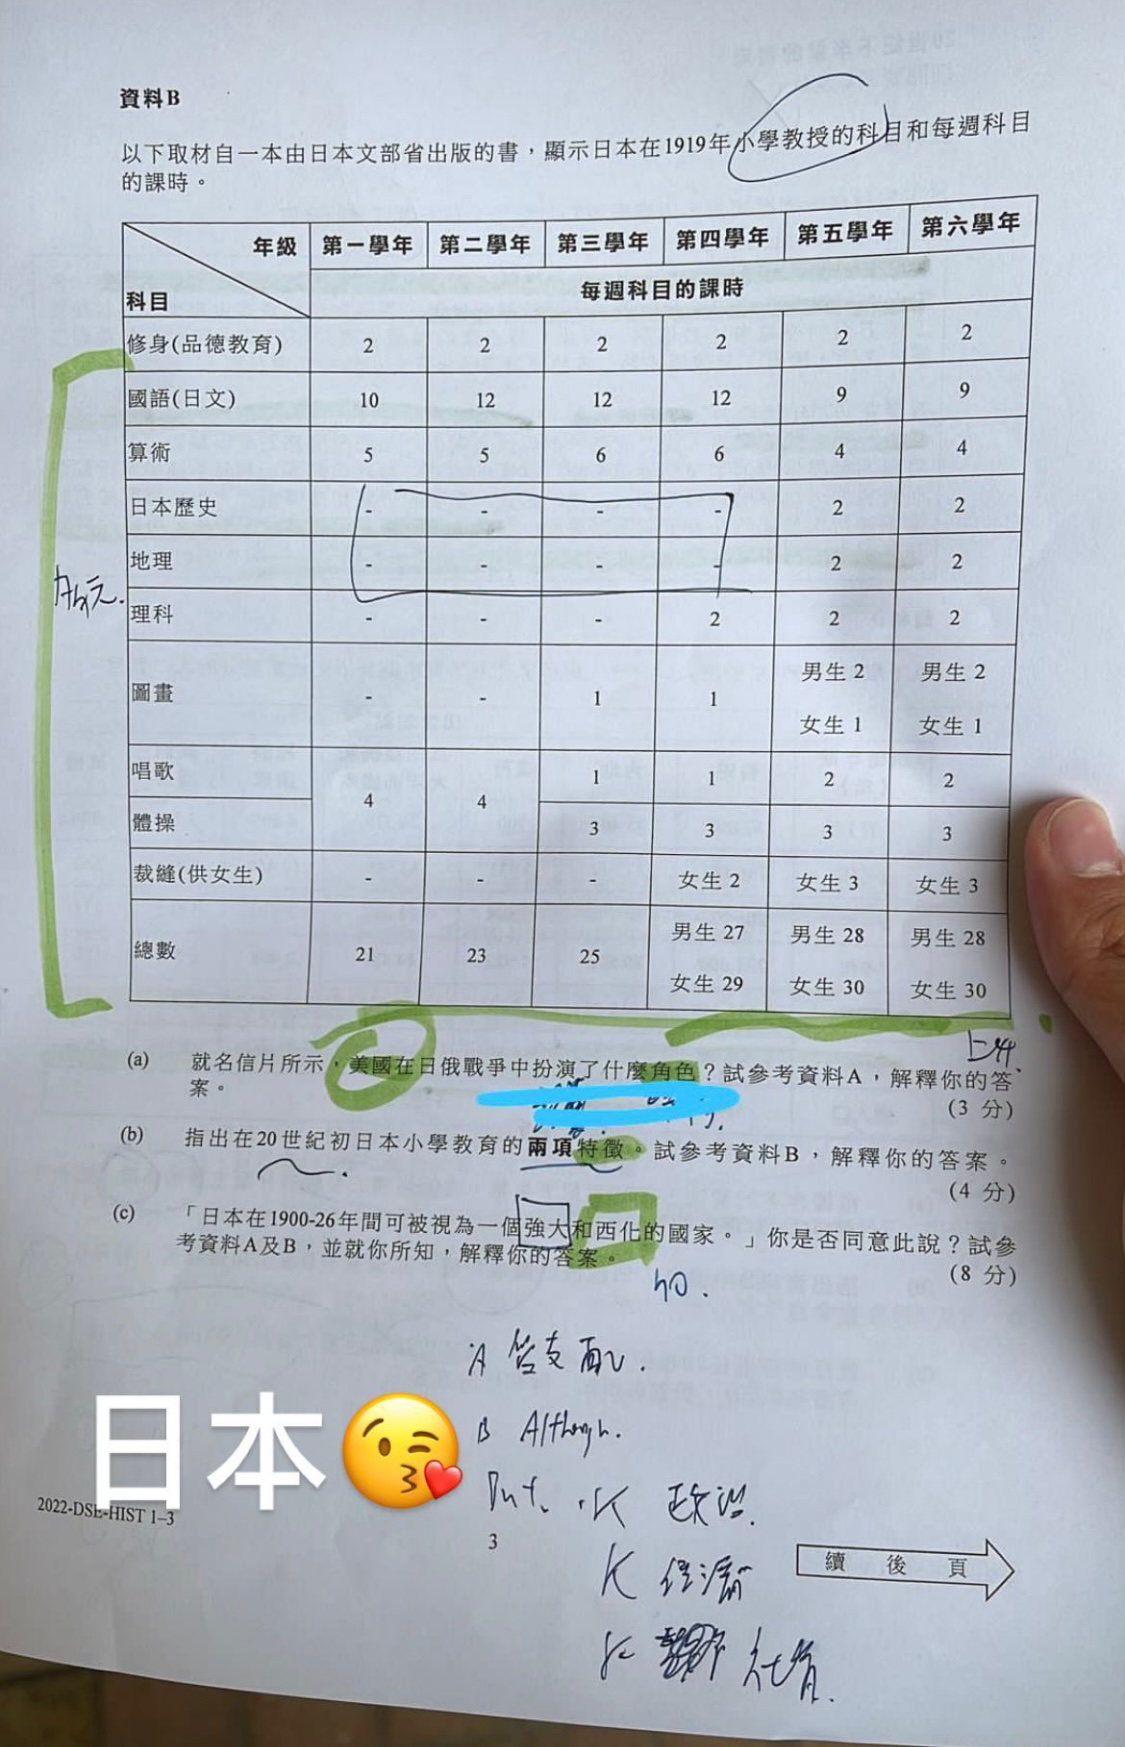 資料B
以下取材自一本由日本文部省出版的書，顯示日本在1919年小學教授的科目和每週科目
的課時。
年級 第一學年 第二學年 第三學年 第四學年 第五學年 第六學年
科目 每週科目的課時
修身(品德教育) 2 2 2 2 2 2
國語(日文) 10 12 12 12 9 9
算術 5 5 6 6 4 4
日本歷史 - - - - 2 2
地理 - - - - 2 2
理科 - - - 2 2 2
圖畫 - - 1 1 男生 2 男生 2
女生 1 女生 1
唱歌 4 4 1 1 2 2
體操 3 3 3 3
裁縫(供女生) - - - 女生 2 女生 3 女生 3
總數 21 23 25 男生 27 男生 28 男生 28
女生 29 女生 30 女生 30
(a) 就名信片所示，美國在日俄戰爭中扮演了什麼角色？試參考資料A，解釋你的答
案。 (3 分)
(b) 指出在20世紀初日本小學教育的兩項特徵。試參考資料B，解釋你的答案。
(4 分)
(c) 「日本在1900-26年間可被視為一個強大和西化的國家。」你是否同意此說？試參
考資料A及B，並就你所知，解釋你的答案。 (8 分)
A
B Although.
But. K 政治.
K 經濟
K
日本😘
2022-DSE-HIST 1–3
3
續 後 頁